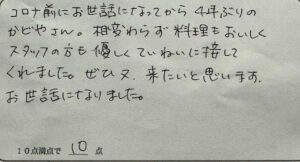 コロナ前にお世話になってから4年ぶりの
かどやさん。相変わらず料理もおいしく
スタッフの方も優しくていねいに接して
くれました。ぜひ又、来たいと思います。
お世話になりました。
10点満点で 10 点